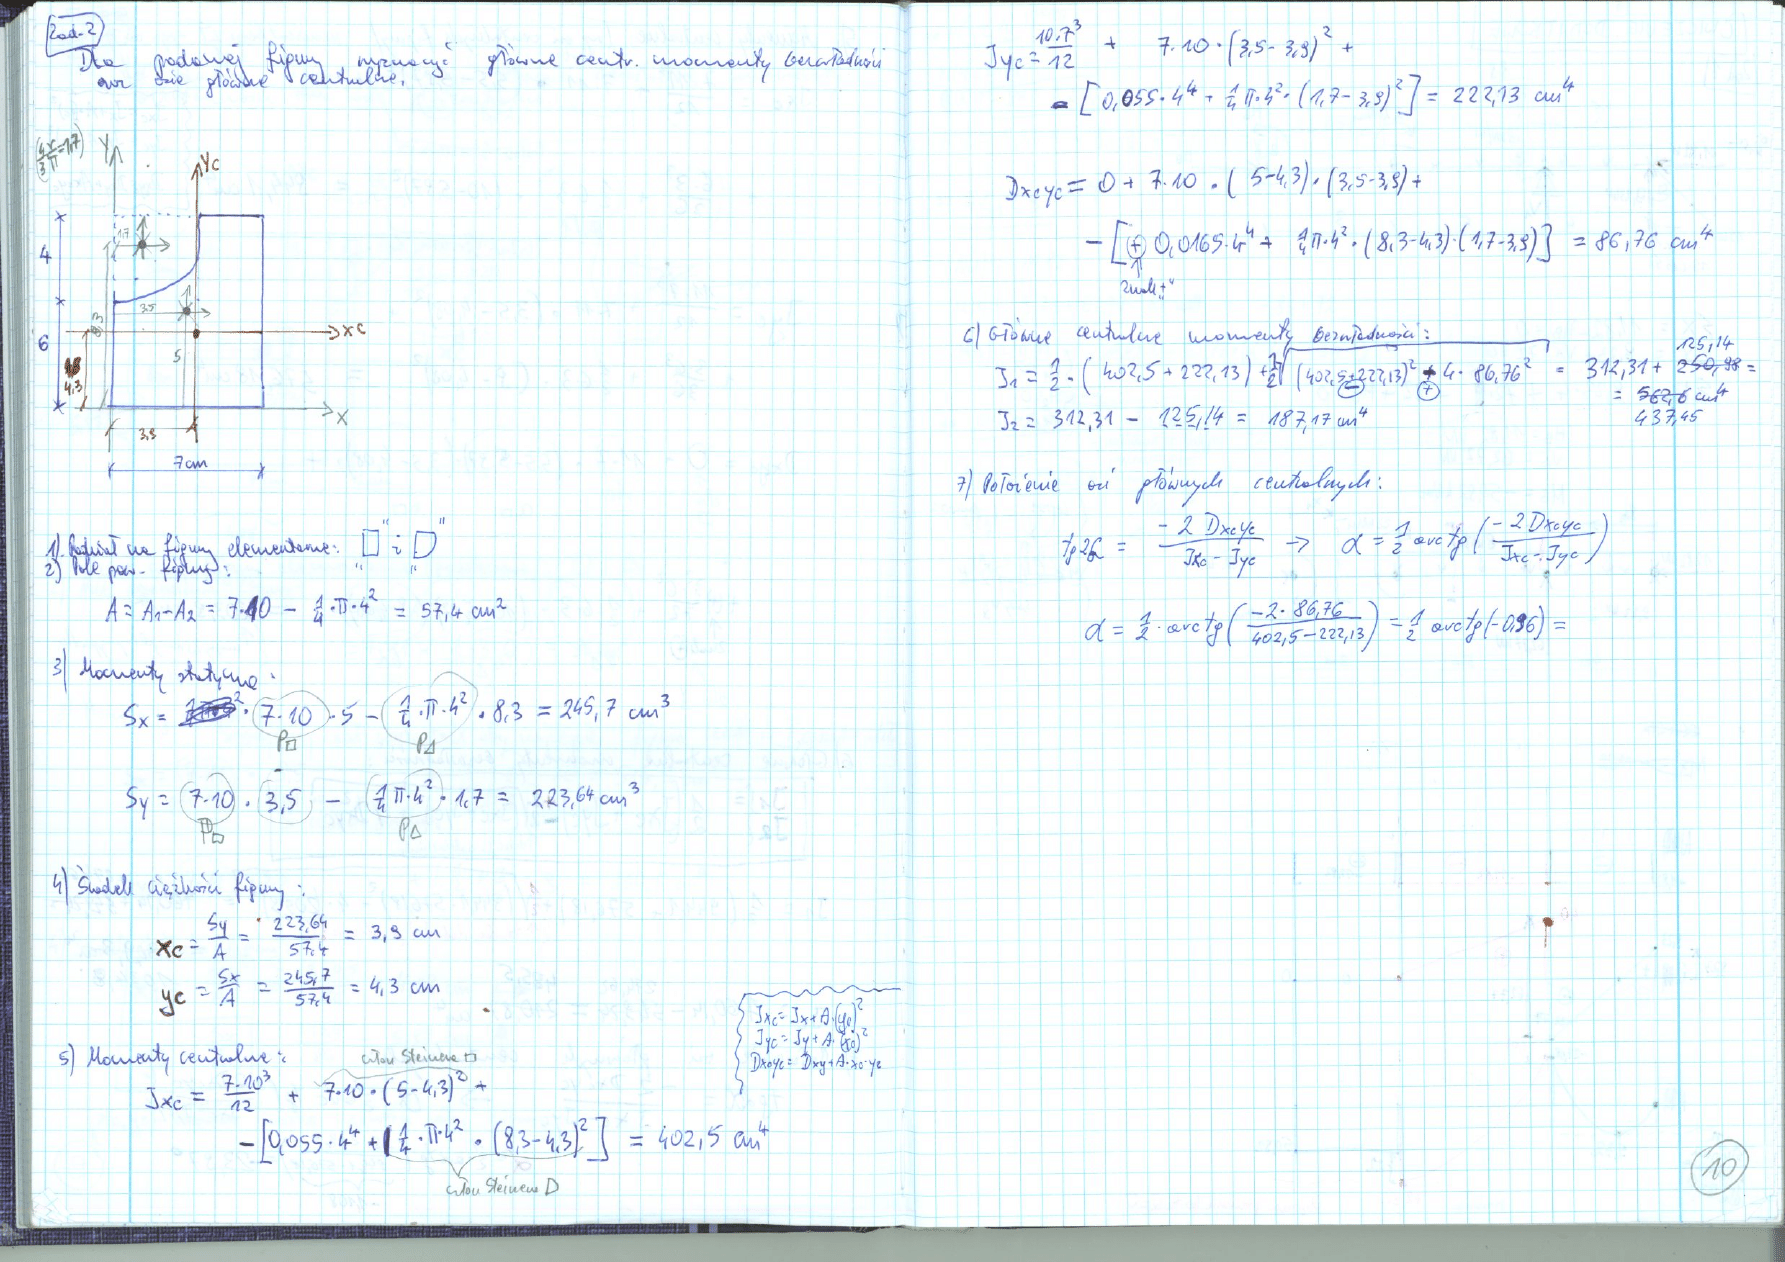 Zad. 2
Dla podanej figury wyznaczyć główne centr. momenty bezwładności
oraz osie główne centralne.
(4r/3π=1,7)
Y
Yc
1,7
4
3,5
8,3
xc
6
5
4,3
X
3,9
7cm
1) Podział na figury elementarne: "□" i "D"
2) Pole pow. figury:
A = A1-A2 = 7·10 - 1/4·π·4² = 57,4 cm²
3) Momenty statyczne:
Sx = 7·10·5 - 1/4·π·4²·8,3 = 245,7 cm³
P□ P△
Sy = 7·10·3,5 - 1/4π·4²·1,7 = 223,64 cm³
P□ P△
4) Środek ciężkości figury:
xc = Sy/A = 223,64/57,4 = 3,9 cm
yc = Sx/A = 245,7/57,4 = 4,3 cm
5) Momenty centralne:
człon Steinera □
Jxc = 7·10³/12 + 7·10·(5-4,3)² +
-[0,055·4⁴ + (1/4·π·4²·(8,3-4,3)²] = 402,5 cm⁴
człon Steinera D
Jxc = Jx+A·(yc)²
Jyc = Jy+A·(xc)²
Dxcyc = Dxy+A·xc·yc
Jyc = 10·7³/12 + 7·10·(3,5-3,9)² +
-[0,055·4⁴ + 1/4π·4²·(1,7-3,9)²] = 222,13 cm⁴
Dxcyc = 0 + 7·10·(5-4,3)·(3,5-3,9) +
-[(+) 0,0165·4⁴ + 1/4π·4²·(8,3-4,3)·(1,7-3,9)] = 86,76 cm⁴
znak „+"
6) Główne centralne momenty bezwładności:
J1 = 1/2·(402,5+222,13) + 1/2√((402,5-222,13)² + 4·86,76²) = 312,31 + 250,98 125,14 =
= 562,6 cm⁴
437,45
J2 = 312,31 - 125,14 = 187,17 cm⁴
7) Położenie osi głównych centralnych:
tg2α = -2Dxcyc/(Jxc-Jyc) → α = 1/2 arctg(-2Dxcyc/(Jxc-Jyc))
α = 1/2·arctg(-2·86,76/(402,5-222,13)) = 1/2 arctg(-0,96) =
10